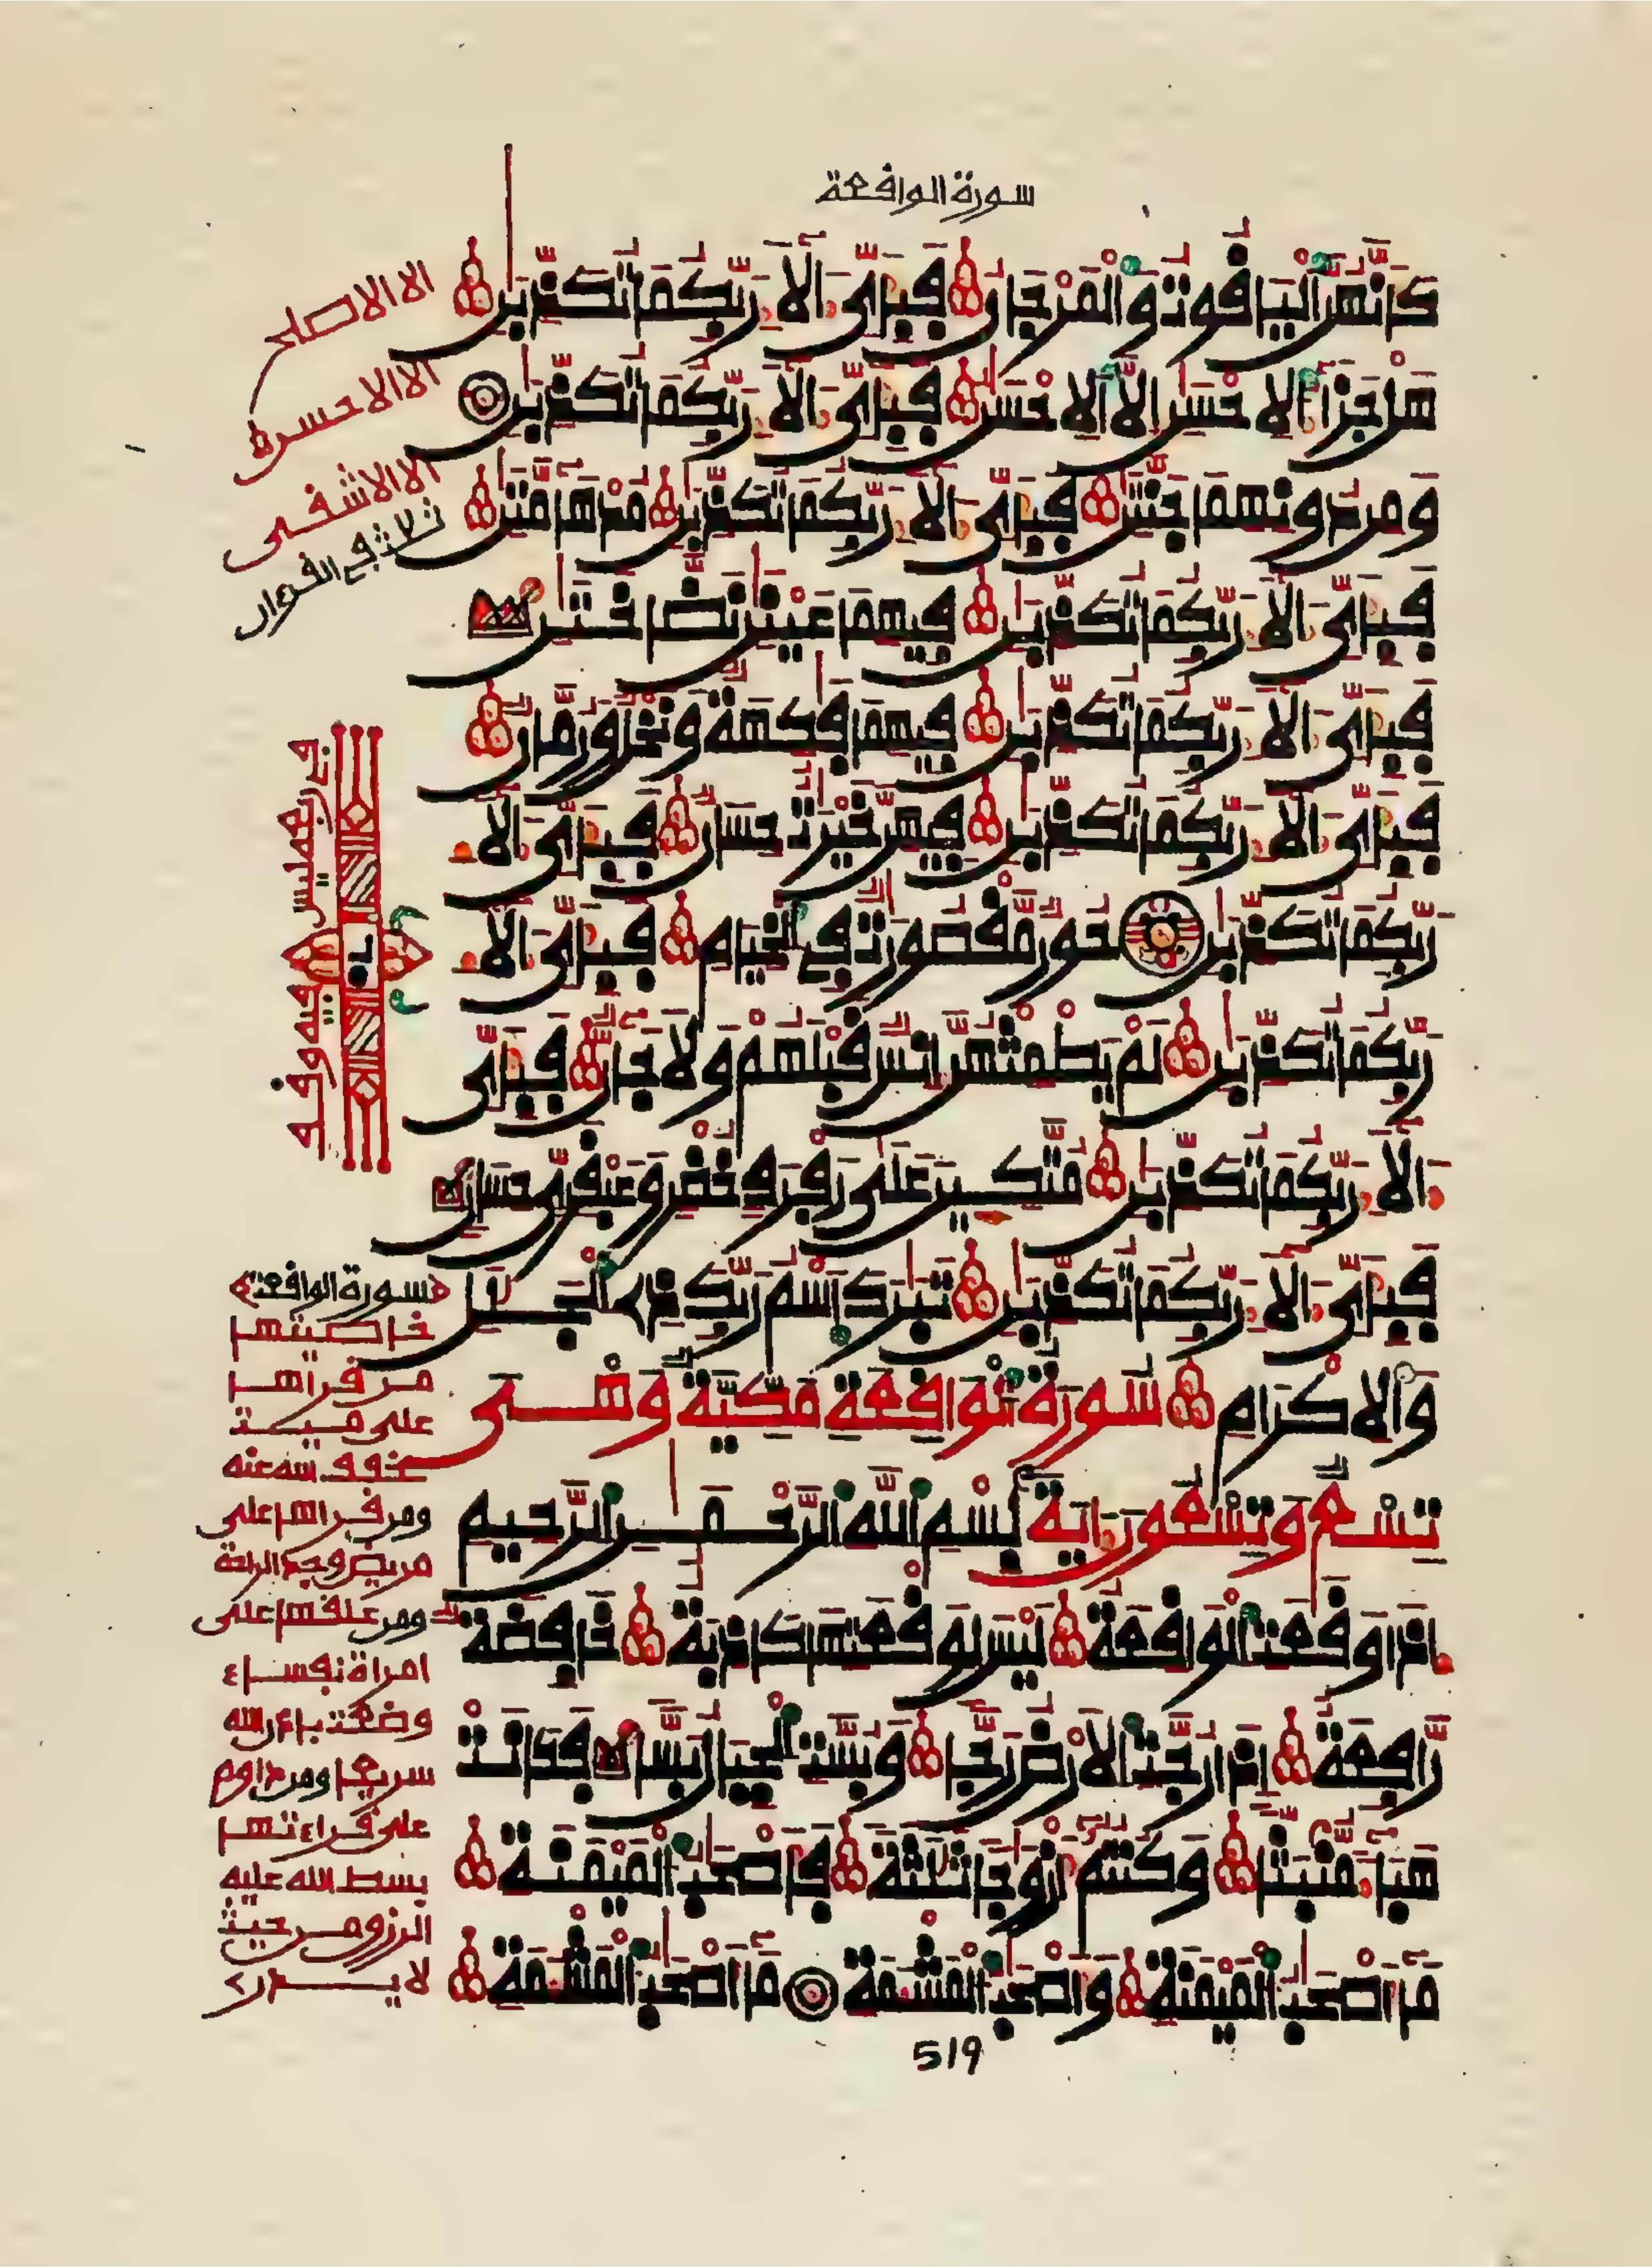 سورة الواقعة
كأنهن الياقوت والمرجان فبأي ءالاء ربكما تكذبن
هل جزاء الاحسن الا الاحسن فبأي ءالاء ربكما تكذبن
ومن دونهما جنتن فبأي ءالاء ربكما تكذبن مدهامتن
فبأي ءالاء ربكما تكذبن فيهما عينن نضاختن
فبأي ءالاء ربكما تكذبن فيهما فكهة ونخل ورمان
فبأي ءالاء ربكما تكذبن فيهن خيرت حسان فبأي ءالاء
ربكما تكذبن حور مقصورت في الخيام فبأي ءالاء
ربكما تكذبن لم يطمثهن انس قبلهم ولا جان فبأي
ءالاء ربكما تكذبن متكين على رفرف خضر وعبقري حسان
فبأي ءالاء ربكما تكذبن تبرك اسم ربك ذي الجلل
والاكرام سورة الواقعة مكية وهي
تسع وتسعون ءاية بسم الله الرحمن الرحيم
اذا وقعت الواقعة ليس لوقعتها كاذبة خافضة
رافعة اذا رجت الارض رجا وبست الجبال بسا فكانت
هباء منبثا وكنتم ازوجا ثلثة فاصحب الميمنة
ما اصحب الميمنة واصحب المشمة ما اصحب المشمة
الا الاصلح
الا الاحسن
الا الاشقى
ثلاث في القرءان
ليس
فيه وقف
سورة الواقعة
خاصيتها
من قراها
على ميت
خفف الله عنه
ومن قراها على
مريض وجد الراحة
ومن علقها على
امراة نفساء
وضعت باذن الله
سريعا ومن داوم
على قراءتها
بسط الله عليه
الرزق من حيث
لا يدري
519